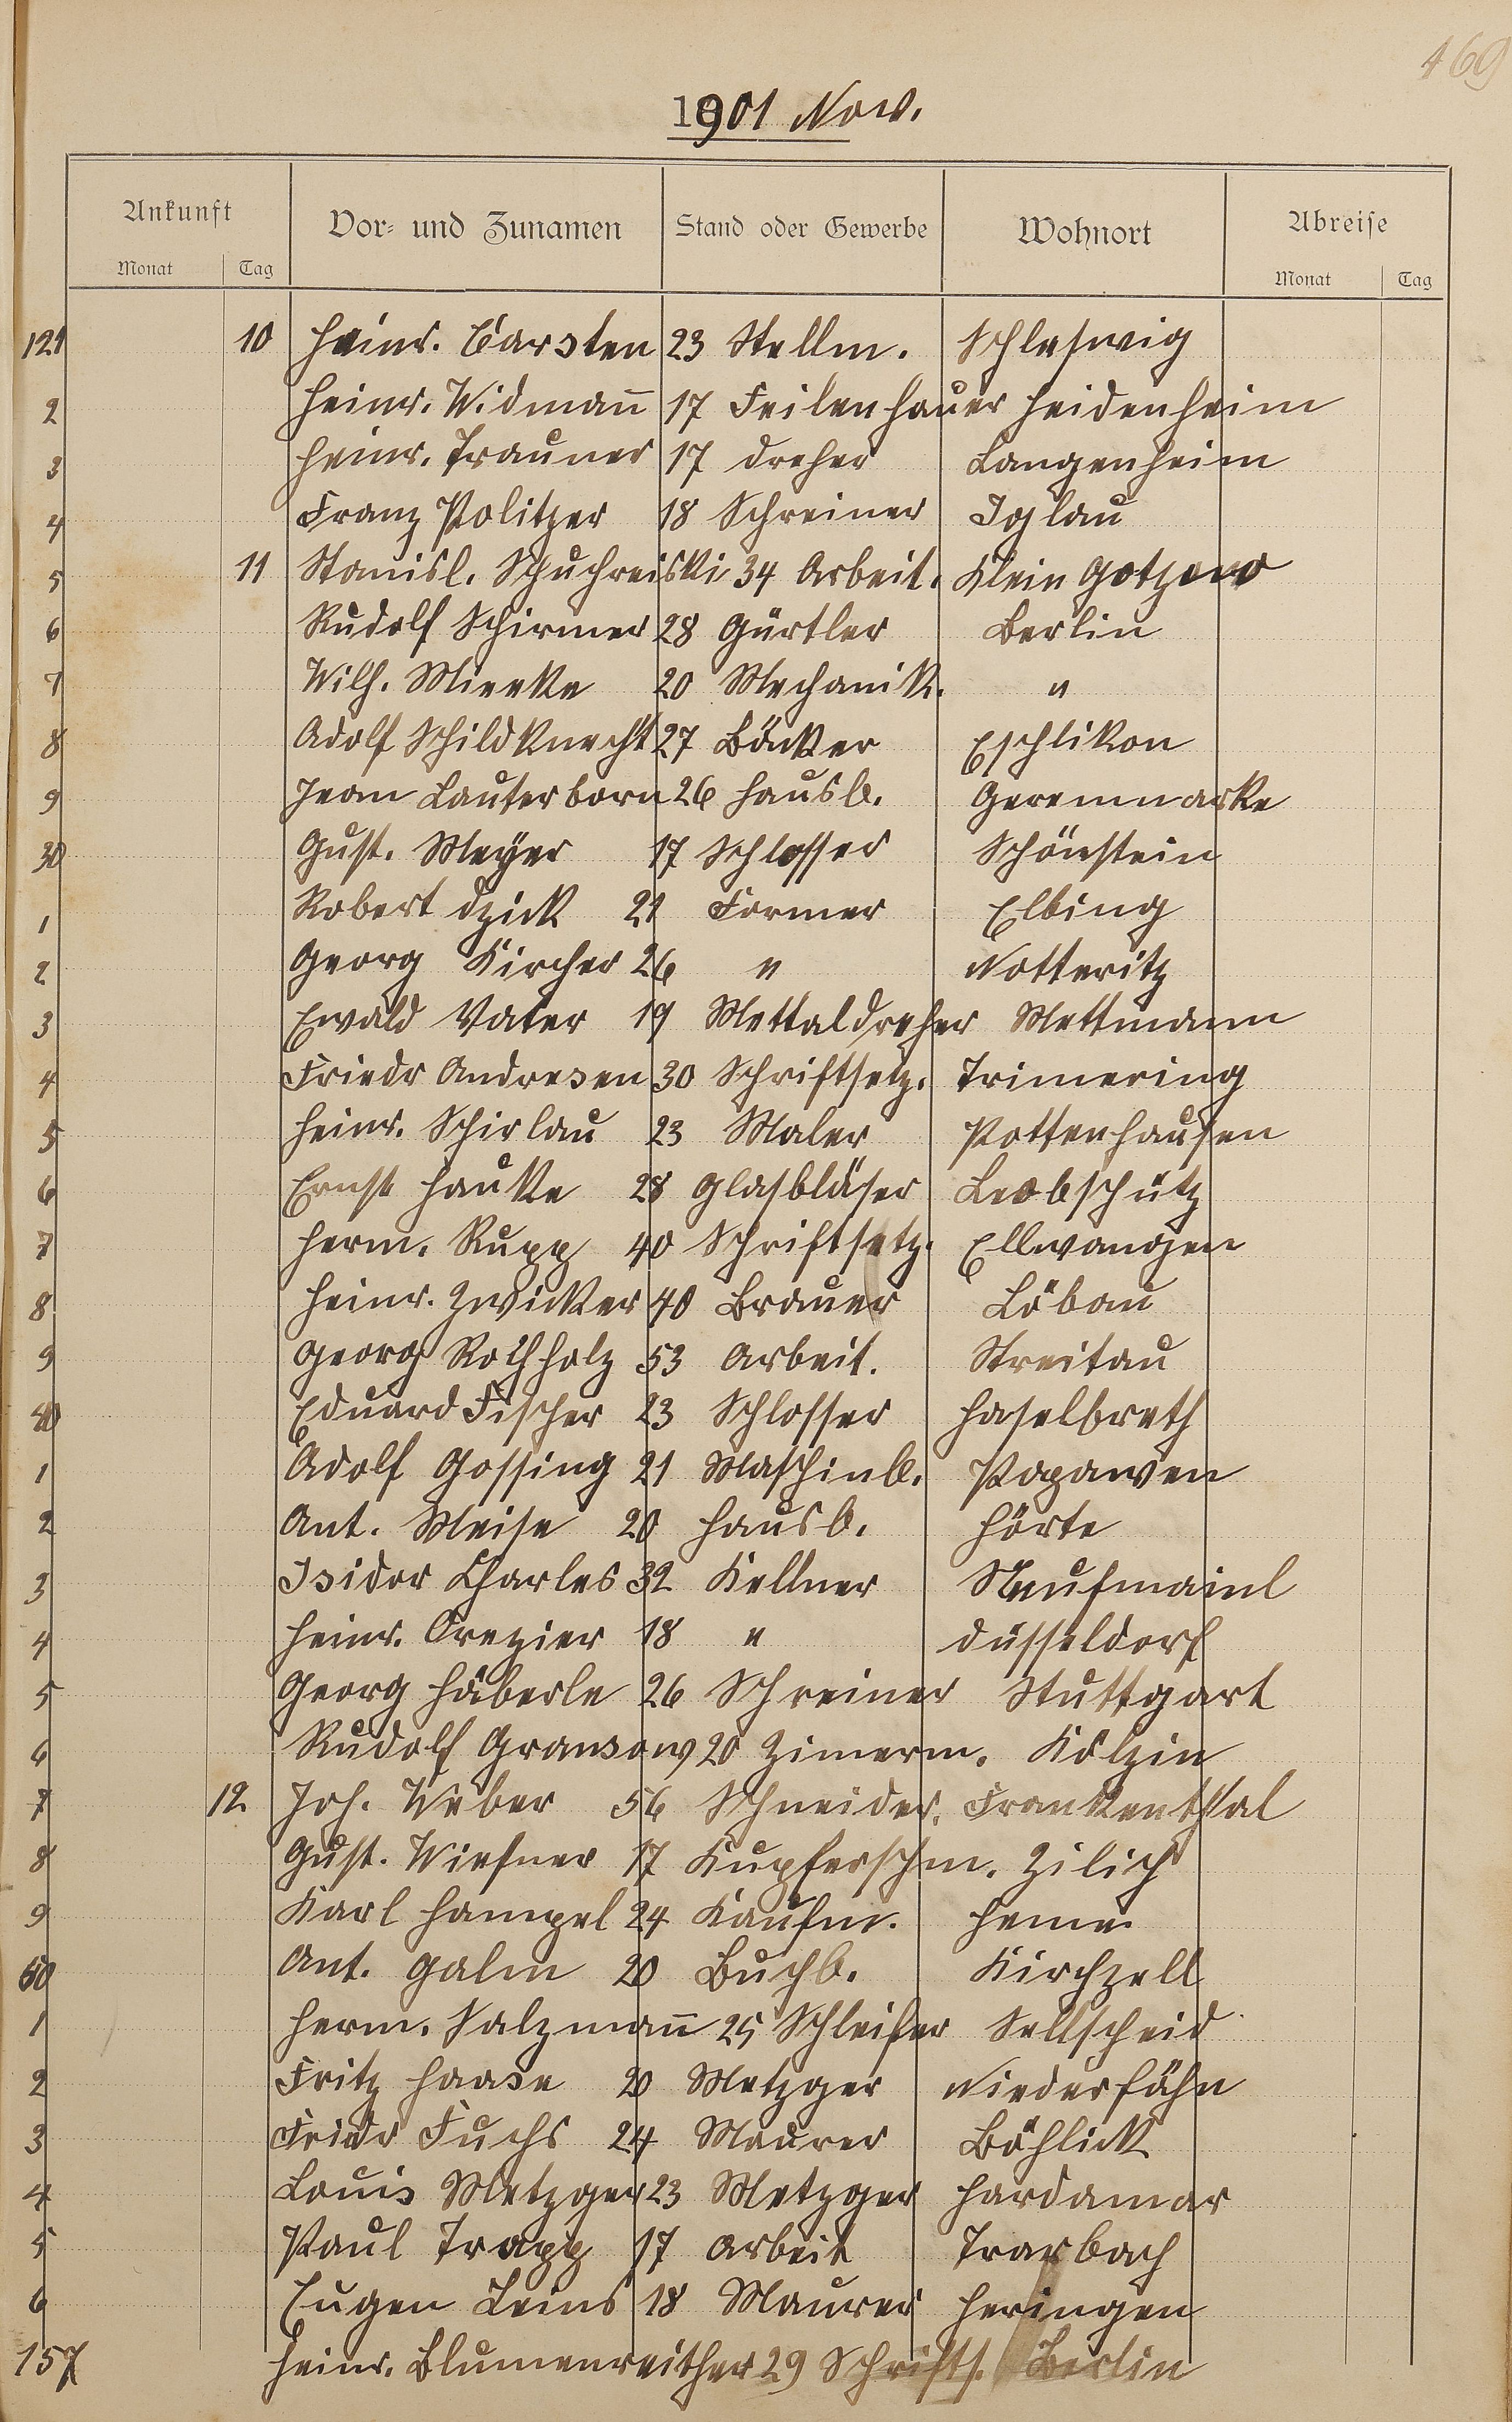 469
1901 Nov.
Ankunft Vor- und Zunamen Stand oder Gewerbe Wohnort Abreise
Monat Tag Monat Tag
121 10 Heinr. Carsten 23 Stellm. Schleswig
2 Heinr. Widmann̄ 17 Feilenhauer Heidenheim
3 Heinr. Trauner 17 Dreher Langenheim
4 Franz Politzer 18 Schreiner Iglau
5 11 Stanisl. Schuchreiski 34 Arbeit. Klein Gotzowo
6 Rudolf Schirmer 28 Gürtler Berlin
7 Wilh. Mierke 20 Mechanik. "
8 Adolf Schildknecht 27 Bäcker Eschlikon
9 Jean Lauterborn 26 Hausb. Geremmarke
30 Gust. Meÿer 17 Schlosser Schönstein
1 Robert Dzick 21 Former Elbing
2 Georg Kircher 26 " Notteritz
3 Ewald Vater 19 Mettaldreher Mettmann
4 Friedr Andresen 30 Schriftsetz. Trimering
5 Heinr. Schirlau 23 Maler Pottenhausen
6 Ernst Hauke 28 Glasbläser Leobschütz
7 Herm. Rupp 40 Schriftsetz. Ellwangen
8 Heinr. Zwicker 40 Brauer Löbau
9 Georg Rothholz 53 Arbeit. Streitau
40 Eduard Fischer 23 Schlosser Haselbreth
1 Adolf Gossing 21 Maschinb. Popawen
2 Ant. Meise 20 Hausb. Hörte
3 Isidor Charles 32 Kellner Neufmainl
4 Heinr. Crezier 18 " Düsseldorf
5 Georg Häberle 26 Schreiner Stuttgart
6 Rudolf Gransow 20 Zimerm. Kölzin
7 12 Joh. Weber 56 Schneider. Frankenthal
8 Gust. Wiesner 17 Kupferschm. Zilich
9 Karl Hampel 24 Kaufm. Hemer
50 Ant. Galm 20 Buchb. Kirchzell
1 Herm. Salzman̄ 25 Schleifer Sellscheid
2 Fritz Haase 20 Metzger Niederfähn
3 Friedr Fuchs 24 Maurer Böhlick
4 Louis Metzger 23 Metzger Hardamar
5 Paul Trapp 17 Arbeit Trarbach
6 Eugen Leins 18 Maurer Heringen
157 Heinr. Blumenreither 29 Schrifts. Berlin